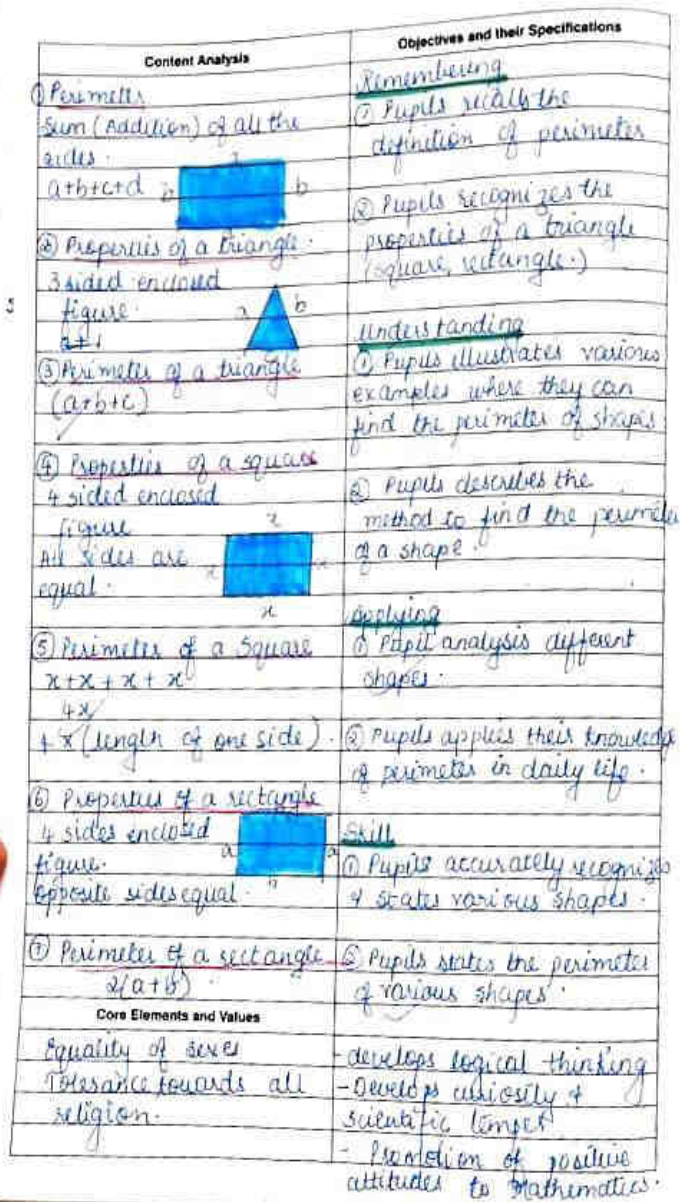 Content Analysis
① Perimeter
Sum (Addition) of all the
sides.
a+b+c+d
b
b
② Properties of a triangle.
3 sided enclosed
figure.
a
b
③ Perimeter of a triangle
(a+b+c)
④ Properties of a square
4 sided enclosed
figure
All sides are
equal.
x
x
x
x
⑤ Perimeter of a Square
x+x+x+x
4x
4 x (length of one side).
⑥ Properties of a rectangle
4 sides enclosed
figure.
Opposite sides equal.
a
a
b
⑦ Perimeter of a rectangle
2(a+b).
Core Elements and Values
Equality of sexes
Tolerance towards all
religion.
Objectives and their Specifications
Remembering
① Pupils recalls the
definition of perimeter
② Pupils recognizes the
properties of a triangle
(square, rectangle.)
Understanding
① Pupils illustrates various
examples where they can
find the perimeter of shapes.
② Pupils describes the
method to find the perimeter
of a shape.
Applying
① Pupil analysis different
shapes.
② Pupils applies their knowledge
of perimeter in daily life.
Skill
① Pupils accurately recognizes
& states various shapes.
② Pupils states the perimeter
of various shapes.
- develops logical thinking
- Develops curiosity &
scientific temper
- Promotion of positive
attitudes to Mathematics.